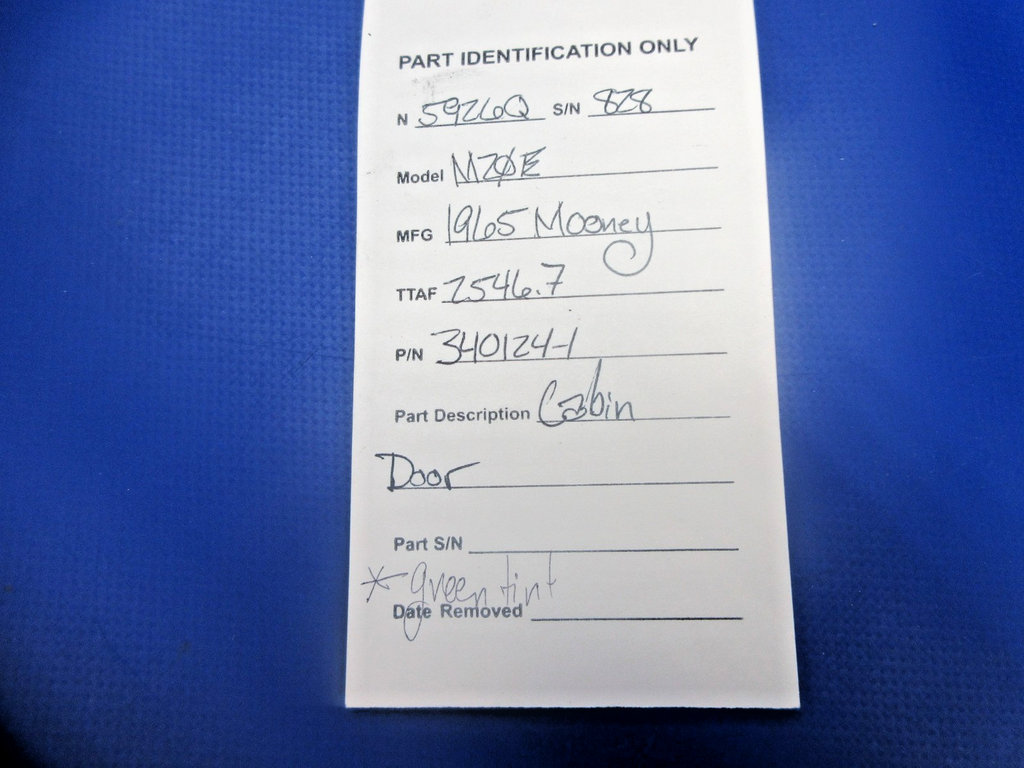 PART IDENTIFICATION ONLY
N 5926Q S/N 828
Model M20E
MFG 1965 Mooney
TTAF 2546.7
P/N 340124-1
Part Description Cabin
Door
Part S/N
* green tint
Date Removed